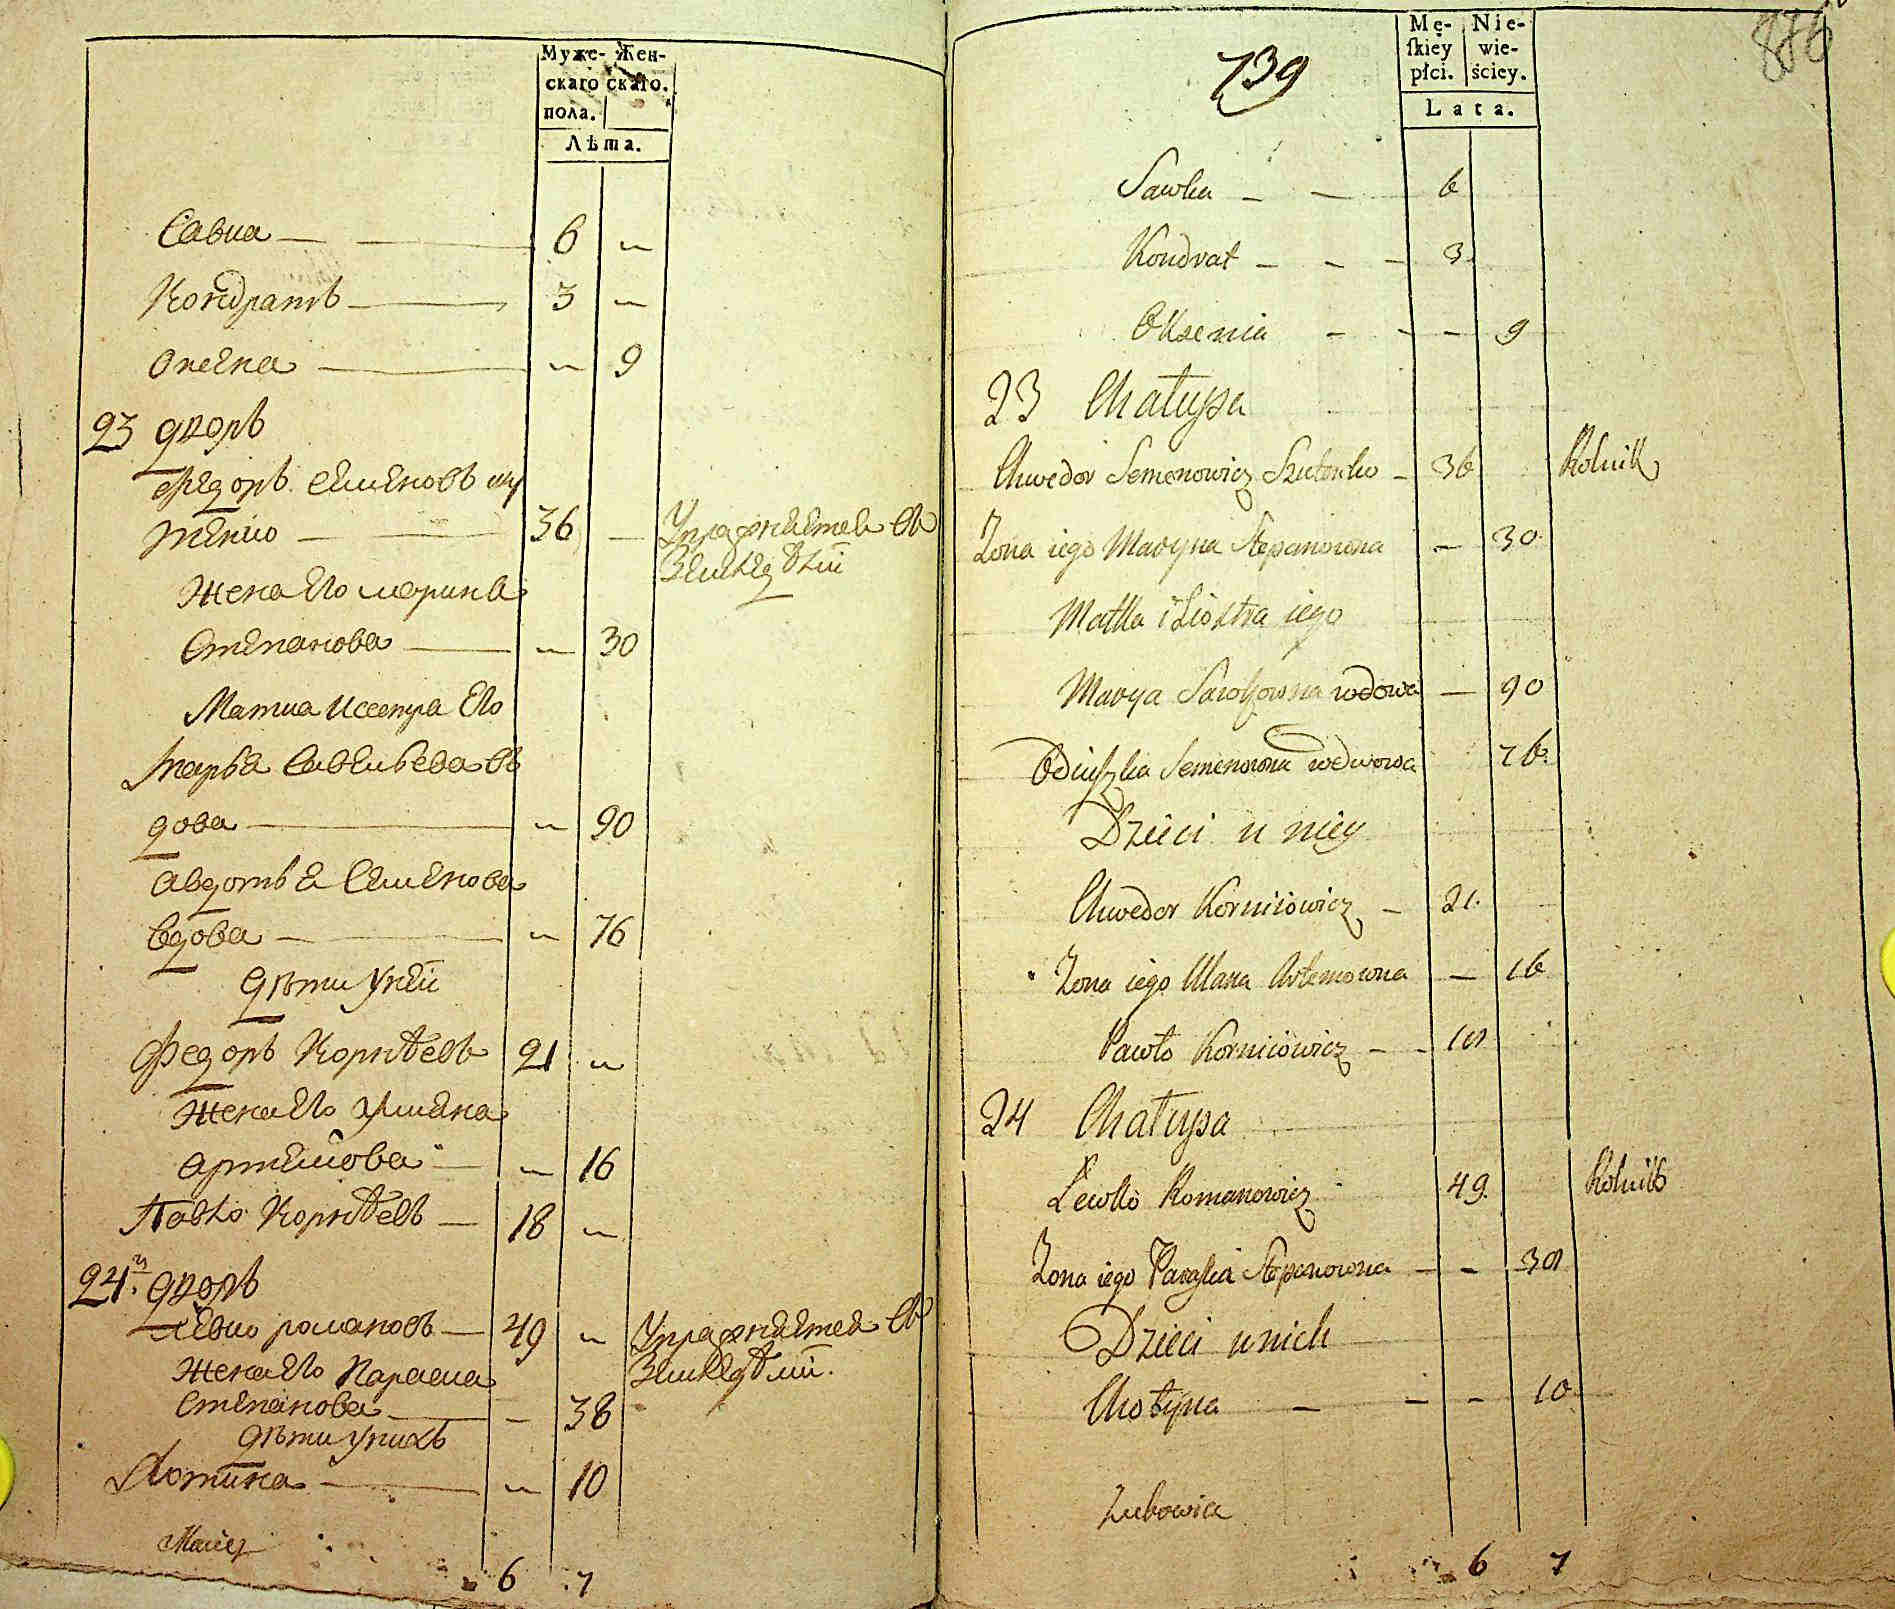 Муже- Жен-
скаго скаго.
пола.
Лѣта.
Савка — — 6 "
Кондратъ — 3 "
Оксена — " 9
23 дворъ
Федоръ Семеновъ шу
тенко — — 36 — Упражняется въ
земледѣлii
Жена его марина
Степанова — " 30
Матка и сестра Его
Марья Савельева в
дова — " 90
Авдотья Семенова
вдова — " 76
Дѣти у ней
Федоръ Корнѣевъ 21 "
Жена его Ульяна
Артемова — " 16
Павло Корнѣевъ — 18 "
24. дворъ
Левко романовъ — 49 " Упражняется въ
земледѣлii.
Жена его Параска
Степанова — – 38
дѣти у нихъ
Хотина — " 10
Maciey
6 7
739
886
Mę- Nie-
ſkiey wie-
płci. ściey.
Lata.
Sawka – — 6
Kondrat – – – 3
Oksenia – – – 9
23 Chałupa
Chwedor Semenowicz Szutenko – 36 Rolnik
Zona iego Maryna Stepanowna — 30
Matka i Siostra iego
Marya Sawkowna wdowa — 90
Odiuszka Semenowna wdowa 76
Dzieci u niey
Chwedor Korniiowicz – 21.
Zona iego Ulana Artemowna — 16
Pawło Korniiowicz – – 18
24 Chałupa
Lewko Romanowicz 49. Rolnik
Zona iego Paraska Stepanowna – – 38
Dzieci u nich
Chotyna – – – 10
Zubowica
6 7